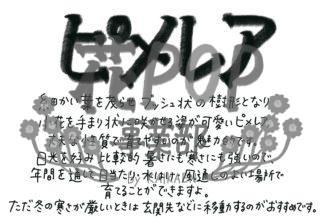 ピメレア
花POP
事業部
細かい葉を茂らせ ブッシュ状の樹形となり
小花を手まり状に咲かせる姿が可愛いピメレア
丈夫な性質で育てやすいのが魅力的です。
日光を好み 比較的 暑さにも寒さにも強いので
年間を通して日当たり、水はけ、風通しのよい場所で
育てることができますよ。
ただ冬の寒さが厳しいときは 玄関先などに移動するのがおすすめです。